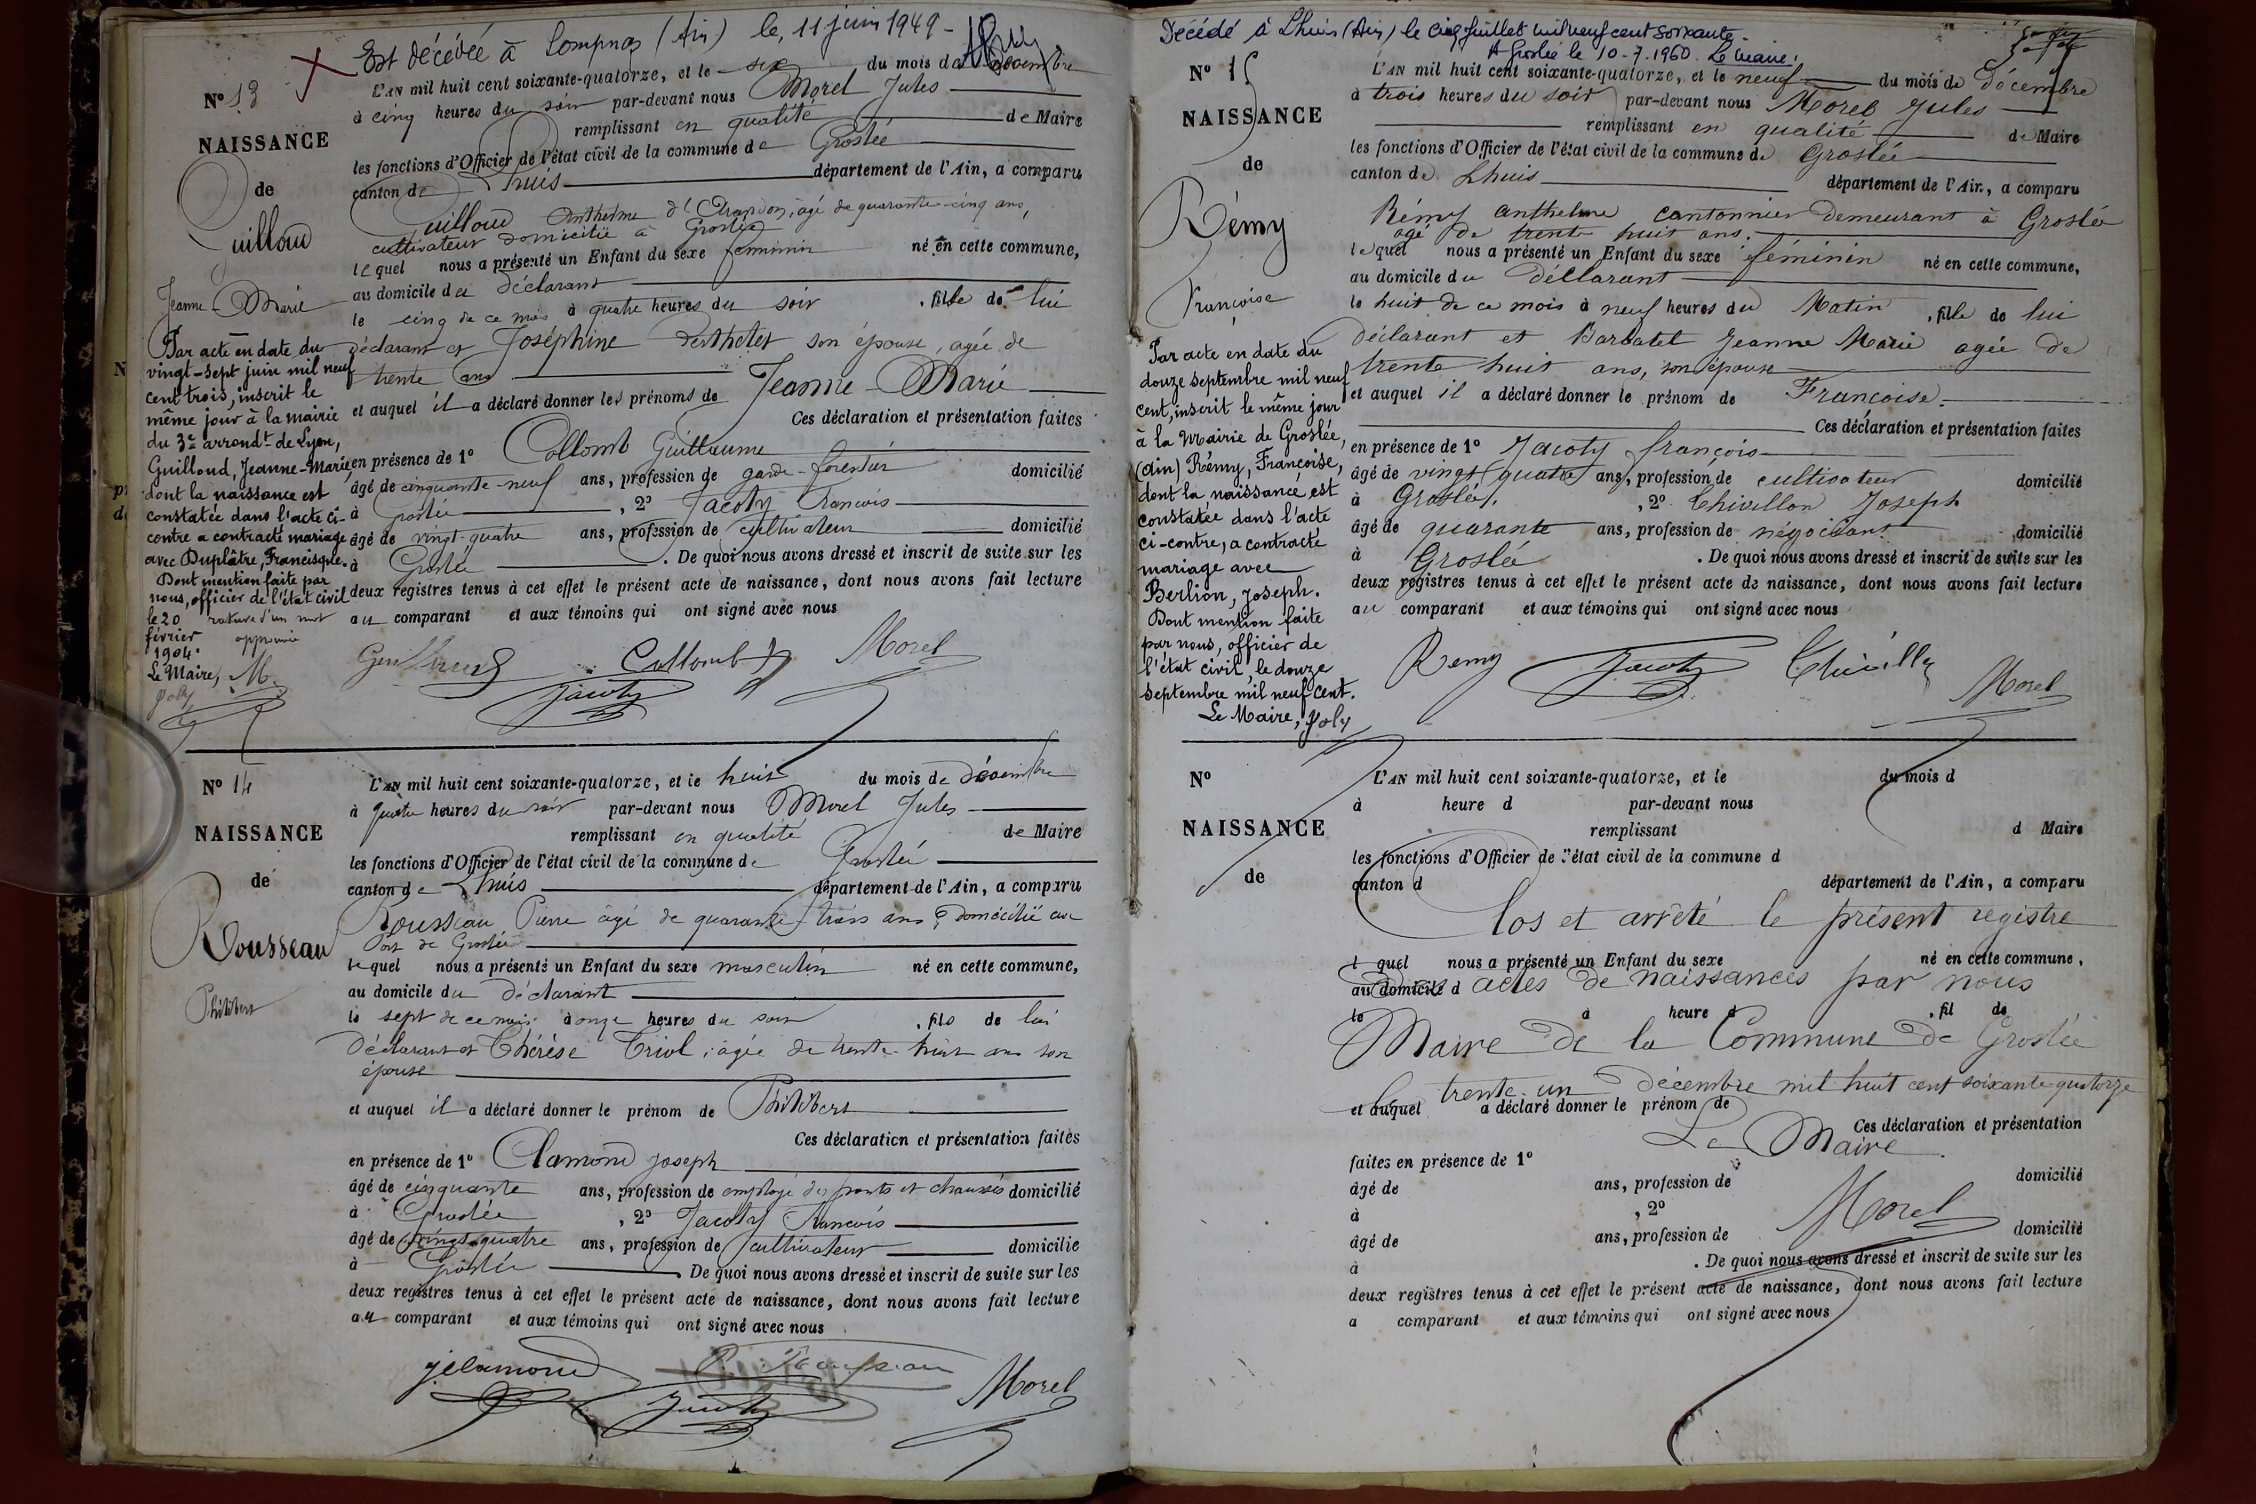 Est décédée à Lompnas (Ain) le, 11 juin 1949 -
Nº 13
NAISSANCE
de
Guilloud
Jeanne-Marie
Par acte en date du
vingt-sept juin mil neuf
cent trois, inscrit le
même jour à la mairie
du 3e arrondt de Lyon,
Guilloud, Jeanne-Marie,
dont la naissance est
constatée dans l'acte ci-
contre a contracté mariage
avec Duplâtre, Francisque.
Dont mention faite par
nous, officier de l'état civil
le 20 rature d'un mot
février approuvée
1904.
Le Maire, M.
Poly
L'AN mil huit cent soixante-quatorze, et le six du mois de décembre
à cinq heures du soir par-devant nous Morel Jules
remplissant en qualité de Maire
les fonctions d'Officier de l'état civil de la commune de Groslée
canton de Lhuis département de l'Ain, a comparu
Guilloud Anthelme d'Arandon, âgé de quarante-cinq ans,
cultivateur domicilié à Groslée
lequel nous a présenté un Enfant du sexe féminin né en cette commune,
au domicile du déclarant
le cinq de ce mois à quatre heures du soir , fille de lui
déclarant et Joséphine Berthelet son épouse, agée de
trente ans
et auquel il a déclaré donner les prénoms de Jeanne-Marie
Ces déclaration et présentation faites
en présence de 1º Collomb Guillaume
âgé de cinquante-neuf ans, profession de garde-forestier domicilié
à Groslée , 2º Jacoty François
âgé de vingt-quatre ans, profession de cultivateur domicilié
à Groslée . De quoi nous avons dressé et inscrit de suite sur les
deux registres tenus à cet effet le présent acte de naissance, dont nous avons fait lecture
au comparant et aux témoins qui ont signé avec nous
Collomb Morel
Jacoty
Nº 14
NAISSANCE
de
Rousseau
Philibert
L'AN mil huit cent soixante-quatorze, et le huit du mois de décembre
à quatre heures du soir par-devant nous Morel Jules
remplissant en qualité de Maire
les fonctions d'Officier de l'état civil de la commune de Groslée
canton de Lhuis département de l'Ain, a comparu
Rousseau Pierre âgé de quarante-trois ans, domicilié au
Port de Groslée
lequel nous a présenté un Enfant du sexe masculin né en cette commune,
au domicile du déclarant
le sept de ce mois à onze heures du soir , fils de lui
déclarant et Thérèse Triol, âgée de trente-huit ans son
épouse
et auquel il a déclaré donner le prénom de Philibert
Ces déclaration et présentation faites
en présence de 1º Clamond Joseph
âgé de cinquante ans, profession de employé des ponts et chaussés domicilié
à Groslée , 2º Jacoty François
âgé de vingt-quatre ans, profession de cultivateur domicilié
à Groslée . De quoi nous avons dressé et inscrit de suite sur les
deux registres tenus à cet effet le présent acte de naissance, dont nous avons fait lecture
au comparant et aux témoins qui ont signé avec nous
J. Clamond P. Rousseau
Jacoty Morel
Décédé à Lhuis (Ain) le cinq juillet mil neuf cent soixante.
A Groslée le 10-7-1960. Le Maire:
Nº 15
NAISSANCE
de
Rémy
Françoise
Par acte en date du
douze septembre mil neuf
cent, inscrit le même jour
à la Mairie de Groslée,
(Ain) Rémy, Françoise,
dont la naissance est
constatée dans l'acte
ci-contre, a contracté
mariage avec
Berlion, Joseph.
Dont mention faite
par nous, officier de
l'état civil, le douze
septembre mil neuf cent.
Le Maire, Poly
L'AN mil huit cent soixante-quatorze, et le neuf du mois de décembre
à trois heures du soir par-devant nous Morel Jules
remplissant en qualité de Maire
les fonctions d'Officier de l'état civil de la commune de Groslée
canton de Lhuis département de l'Ain, a comparu
Rémy Anthelme cantonnier demeurant à Groslée
agé de trente huit ans.
lequel nous a présenté un Enfant du sexe féminin né en cette commune,
au domicile du déclarant
le huit de ce mois à neuf heures du Matin , fille de lui
déclarant et Barbatel Jeanne Marie agée de
trente huit ans, son épouse
et auquel il a déclaré donner le prénom de Françoise.
Ces déclaration et présentation faites
en présence de 1º Jacoty François
âgé de vingt quatre ans, profession de cultivateur domicilié
à Groslée, , 2º Chivillon Joseph
âgé de quarante ans, profession de négociant domicilié
à Groslée . De quoi nous avons dressé et inscrit de suite sur les
deux registres tenus à cet effet le présent acte de naissance, dont nous avons fait lecture
au comparant et aux témoins qui ont signé avec nous
Remy Jacoty Morel
Nº
NAISSANCE
de
L'AN mil huit cent soixante-quatorze, et le du mois d
à heure d par-devant nous
remplissant d Maire
les fonctions d'Officier de l'état civil de la commune d
canton d département de l'Ain, a comparu
Clos et arrêté le présent registre
l quel nous a présenté un Enfant du sexe né en cette commune,
au domicile d
des actes de naissances par nous
le à heure d , fil de
Maire de la Commune de Groslée
le trente-un décembre mil huit cent soixante-quatorze
et auquel a déclaré donner le prénom de
Ces déclaration et présentation
Le Maire
faites en présence de 1º
âgé de ans, profession de domicilié
à , 2º
Morel
âgé de ans, profession de domicilié
à . De quoi nous avons dressé et inscrit de suite sur les
deux registres tenus à cet effet le présent acte de naissance, dont nous avons fait lecture
a comparant et aux témoins qui ont signé avec nous